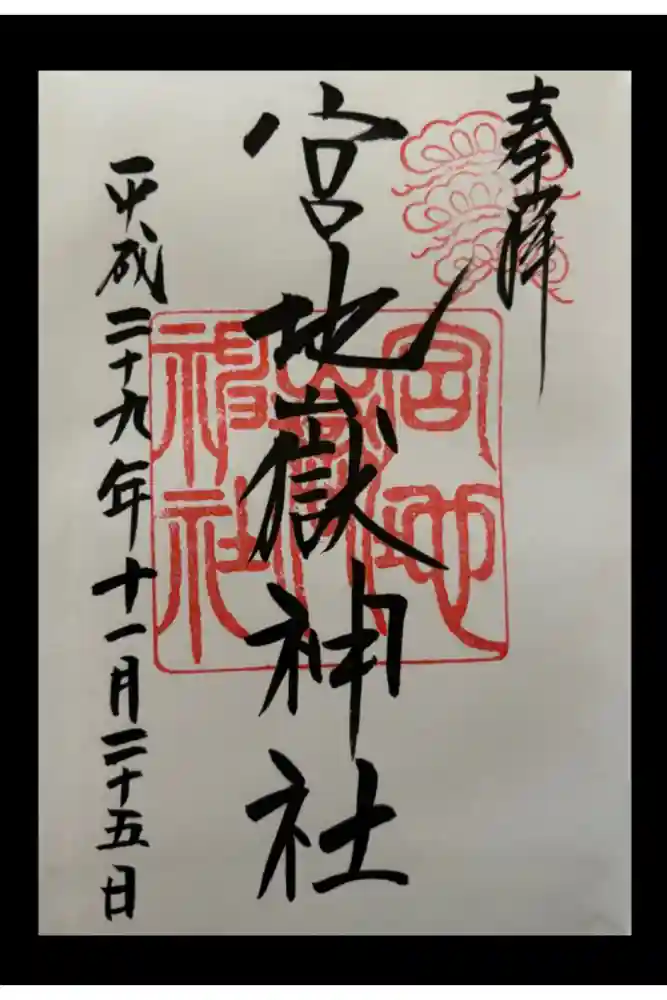 奉拝
宮地嶽神社
宮地嶽神社
平成二十九年十一月二十五日